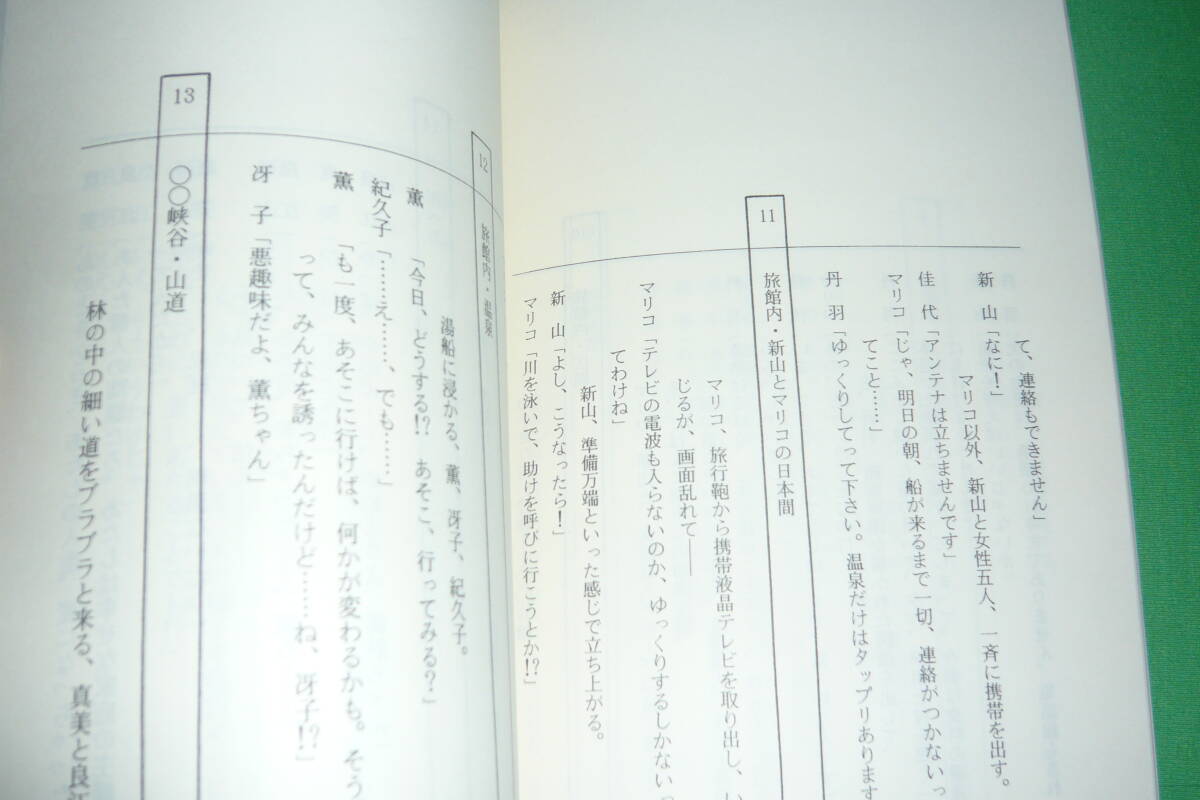 て、連絡もできません」
新　山「なに！」
マリコ以外、新山と女性五人、一斉に携帯を出す。
佳　代「アンテナは立ちませんです」
マリコ「じゃ、明日の朝、船が来るまで一切、連絡がつかないっ
てこと……」
丹　羽「ゆっくりしてって下さい。温泉だけはタップリあります
11
旅館内・新山とマリコの日本間
マリコ、旅行鞄から携帯液晶テレビを取り出し、い
じるが、画面乱れて――
マリコ「テレビの電波も入らないのか、ゆっくりするしかないっ
てわけね」
新山、準備万端といった感じで立ち上がる。
新　山「よし、こうなったら！」
マリコ「川を泳いで、助けを呼びに行こうとか!?」
12
旅館内・温泉
湯船に浸かる、薫、冴子、紀久子。
薫　　「今日、どうする!?　あそこ、行ってみる？」
紀久子「……え……、でも……」
薫　　「も一度、あそこに行けば、何かが変わるかも。そう
って、みんなを誘ったんだけど……ね、冴子!?」
冴　子「悪趣味だよ、薫ちゃん」
13
〇〇峡谷・山道
林の中の細い道をブラブラと来る、真美と良江